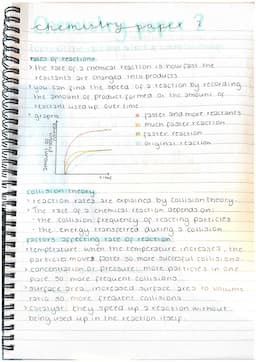 chemistry paper 2
rates of reactions
> the rate of a chemical reaction is how fast the
reactants are changed into products
> you can find the speed of a reaction by recording
the amount of product formed or the amount of
reactant used up over time
> graphs
faster and more reactants
much faster reaction
faster reaction
original reaction
amount of product
time
collision theory
• reaction rates are explained by collision theory.
• The rate of a chemical reaction depends on:
• the collision frequency of reacting particles
• the energy transferred during a collision
factors affecting rate of reaction
> temperature: when the temperature increases, the
particles moves faster so more successful collisions.
> concentration or pressure: more particles in one
place so more frequent collisions
> surface area: increased surface area to volume
ratio so more frequent collisions
> catalyst: they speed up a reaction without
being used up in the reaction itself.